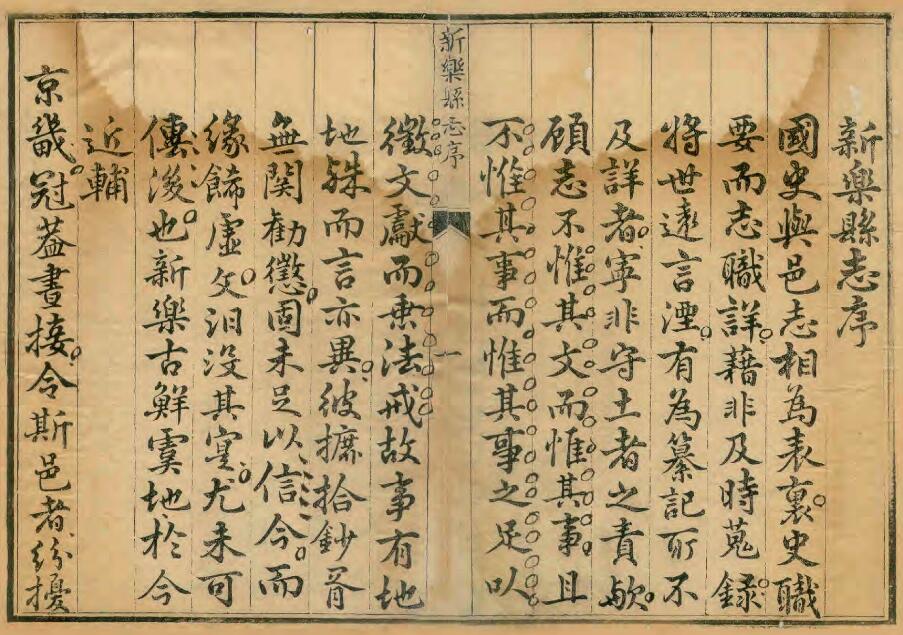 新樂縣志序
國史與邑志相為表裏史職
要而志職詳藉非及時蒐錄
將世遠言湮有為纂記所不
及詳者寧非守土者之責歟
顧志不惟其文而惟其事且
不惟其事而惟其事之足以
新樂縣志序
一
徵文獻而垂法戒故事有地
地殊而言亦異彼摭拾鈔胥
無関勸懲固未足以信今而
緣餙虛文汩没其寔尤未可
傳後也新樂古鮮虞地於今
近輔
京畿冠葢晝接令斯邑者紛擾